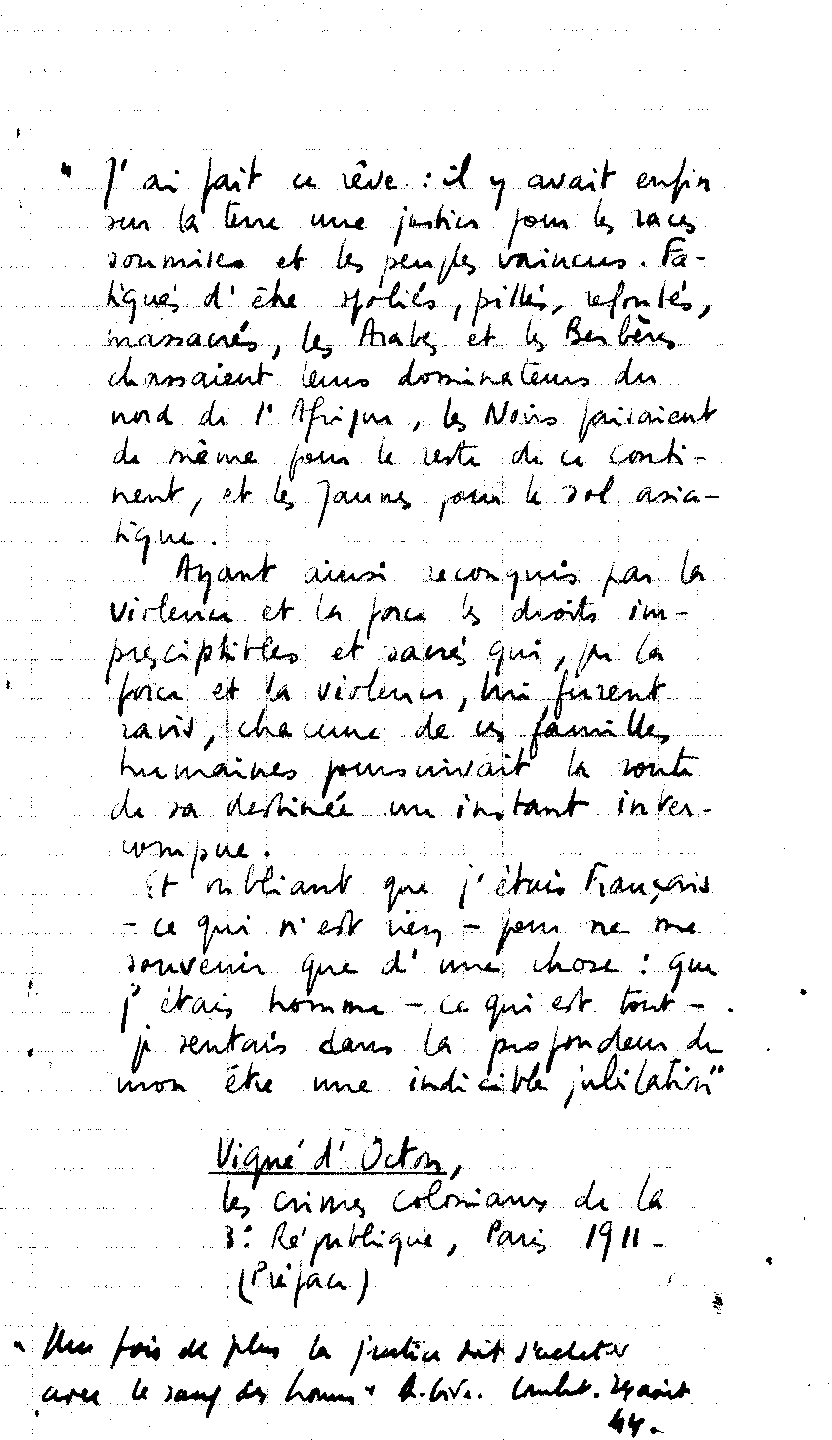 " J'ai fait ce rêve : il y avait enfin
sur la terre une justice pour les races
soumises et les peuples vaincus. Fa-
tigués d'être spoliés, pillés, refoulés,
massacrés, les Arabes et les Berbères
chassaient leurs dominateurs du
nord de l'Afrique, les Noirs faisaient
de même pour le reste de ce conti-
nent, et les Jaunes pour le sol asia-
tique.
Ayant ainsi reconquis par la
violence et la force les droits im-
presciptibles et sacrés qui, par la
force et la violence, lui furent
ravis, chacune de ces familles
humaines poursuivait la route
de sa destinée un instant inter-
rompue.
Et oubliant que j'étais Français
- ce qui n'est rien - pour ne me
souvenir que d'une chose : que
j'étais homme - ce qui est tout -
je sentais dans la profondeur de
mon être une indicible jubilation"
Vigné d'Octon,
les crimes coloniaux de la
3e République, Paris 1911 -
(Préface)
" Une fois de plus la justice doit s'acheter
avec le sang des hommes " Combat. 24 août
44.